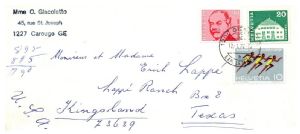 Mme G. Giacoletto
45, rue St. Joseph
1227 Carouge GE
20
HELVETIA 10
Monsieur et Madame
Erich Lappé
Lappé Ranch Box 2
Kingsland
Texas
U.S.A
78639